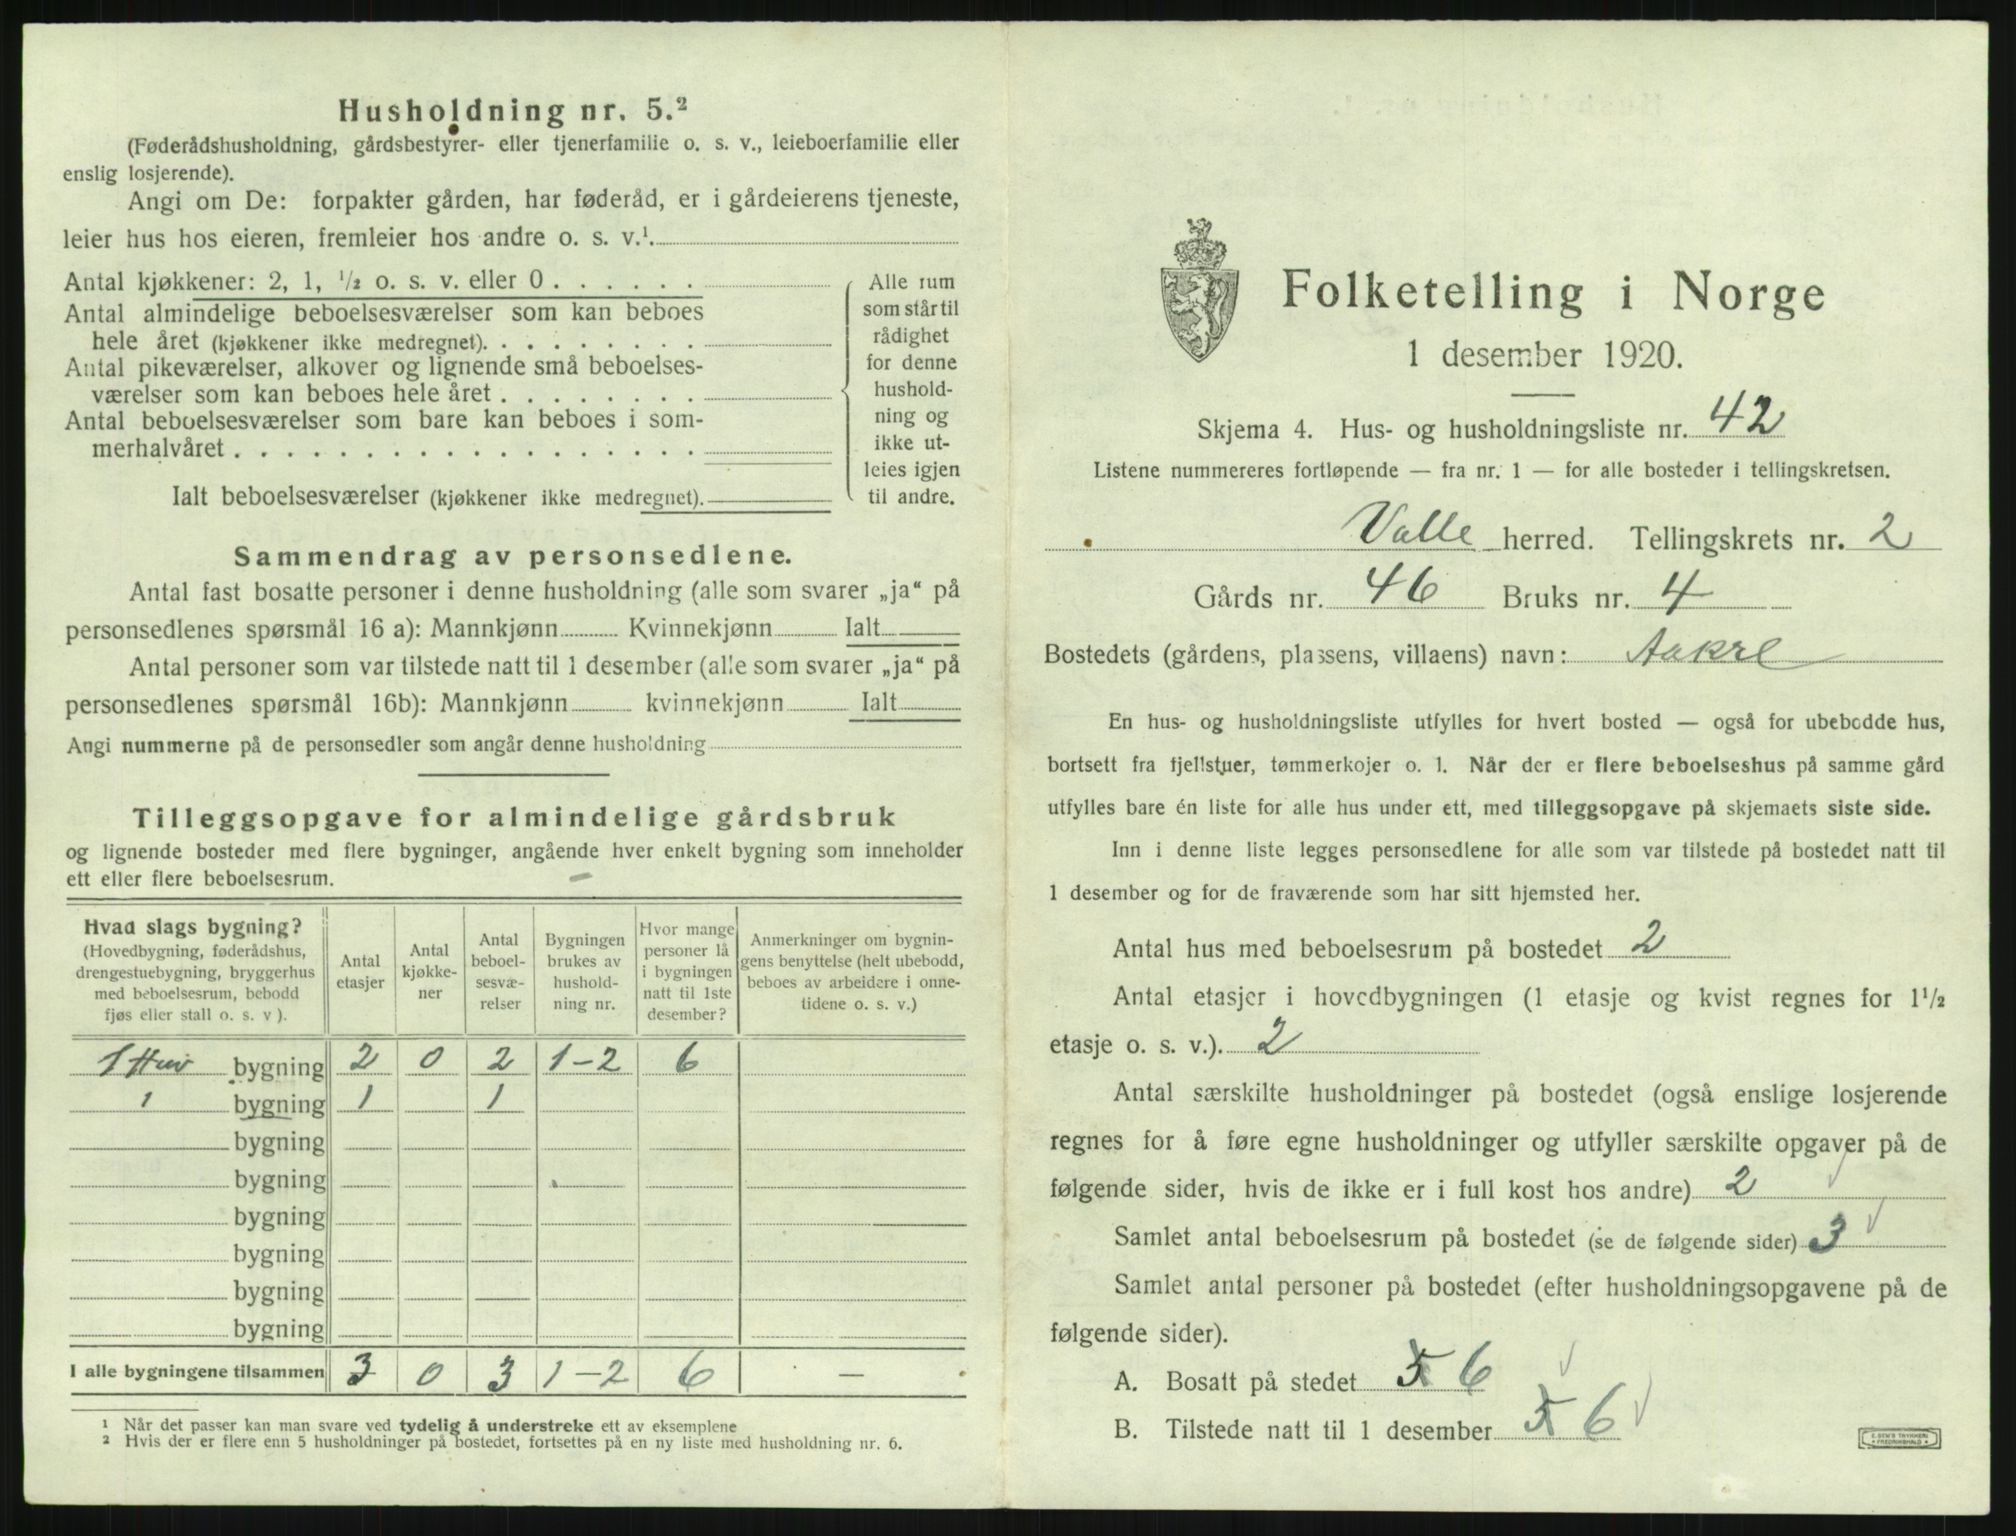 Husholdning nr. 5.²
(Føderådshusholdning, gårdsbestyrer- eller tjenerfamilie o. s. v., leieboerfamilie eller
enslig losjerende).
Angi om De: forpakter gården, har føderåd, er i gårdeierens tjeneste,
leier hus hos eieren, fremleier hos andre o. s. v.¹.
Antal kjøkkener: 2, 1, ½ o. s. v. eller 0 . . . . . .
Antal almindelige beboelsesværelser som kan beboes
hele året (kjøkkener ikke medregnet). . . . . . . . .
Antal pikeværelser, alkover og lignende små beboelses-
værelser som kan beboes hele året . . . . . . . .
Antal beboelsesværelser som bare kan beboes i som-
merhalvåret . . . . . . . . . . . . . . . . . .
Ialt beboelsesværelser (kjøkkener ikke medregnet).
Alle rum
som står til
rådighet
for denne
hushold-
ning og
ikke ut-
leies igjen
til andre.
Sammendrag av personsedlene.
Antal fast bosatte personer i denne husholdning (alle som svarer „ja“ på
personsedlenes spørsmål 16 a): Mannkjønn Kvinnekjønn Ialt
Antal personer som var tilstede natt til 1 desember (alle som svarer „ja“ på
personsedlenes spørsmål 16b): Mannkjønn kvinnekjønn Ialt
Angi nummerne på de personsedler som angår denne husholdning
Tilleggsopgave for almindelige gårdsbruk
og lignende bosteder med flere bygninger, angående hver enkelt bygning som inneholder
ett eller flere beboelsesrum.
Hvad slags bygning?
(Hovedbygning, føderådshus,
drengestuebygning, bryggerhus
med beboelsesrum, bebodd
fjøs eller stall o. s. v ).
Antal
etasjer
Antal
kjøkke-
ner
Antal
beboel-
sesvæ-
relser
Bygningen
brukes av
hushold-
ning nr.
Hvor mange
personer lå
i bygningen
natt til 1ste
desember?
Anmerkninger om bygnin-
gens benyttelse (helt ubebodd,
beboes av arbeidere i onne-
tidene o. s. v.)
bygning 2 0 2 1-2 6
1 bygning 1 1
bygning
bygning
bygning
bygning
bygning
bygning
I alle bygningene tilsammen 3 0 3 1-2 6 —
¹ Når det passer kan man svare ved tydelig å understreke ett av eksemplene
² Hvis der er flere enn 5 husholdninger på bostedet, fortsettes på en ny liste med husholdning nr. 6.
Folketelling i Norge
1 desember 1920.
Skjema 4. Hus- og husholdningsliste nr. 42
Listene nummereres fortløpende — fra nr. 1 — for alle bosteder i tellingskretsen.
Valle herred. Tellingskrets nr. 2
Gårds nr. 46 Bruks nr. 4
Bostedets (gårdens, plassens, villaens) navn: Aakre
En hus- og husholdningsliste utfylles for hvert bosted — også for ubebodde hus,
bortsett fra fjellstuer, tømmerkojer o. l. Når der er flere beboelseshus på samme gård
utfylles bare én liste for alle hus under ett, med tilleggsopgave på skjemaets siste side.
Inn i denne liste legges personsedlene for alle som var tilstede på bostedet natt til
1 desember og for de fraværende som har sitt hjemsted her.
Antal hus med beboelsesrum på bostedet 2
Antal etasjer i hovedbygningen (1 etasje og kvist regnes for 1½
etasje o. s. v.). 2
Antal særskilte husholdninger på bostedet (også enslige losjerende
regnes for å føre egne husholdninger og utfyller særskilte opgaver på de
følgende sider, hvis de ikke er i full kost hos andre) 2
Samlet antal beboelsesrum på bostedet (se de følgende sider) 3
Samlet antal personer på bostedet (efter husholdningsopgavene på de
følgende sider).
A. Bosatt på stedet 5 6
B. Tilstede natt til 1 desember 5 6